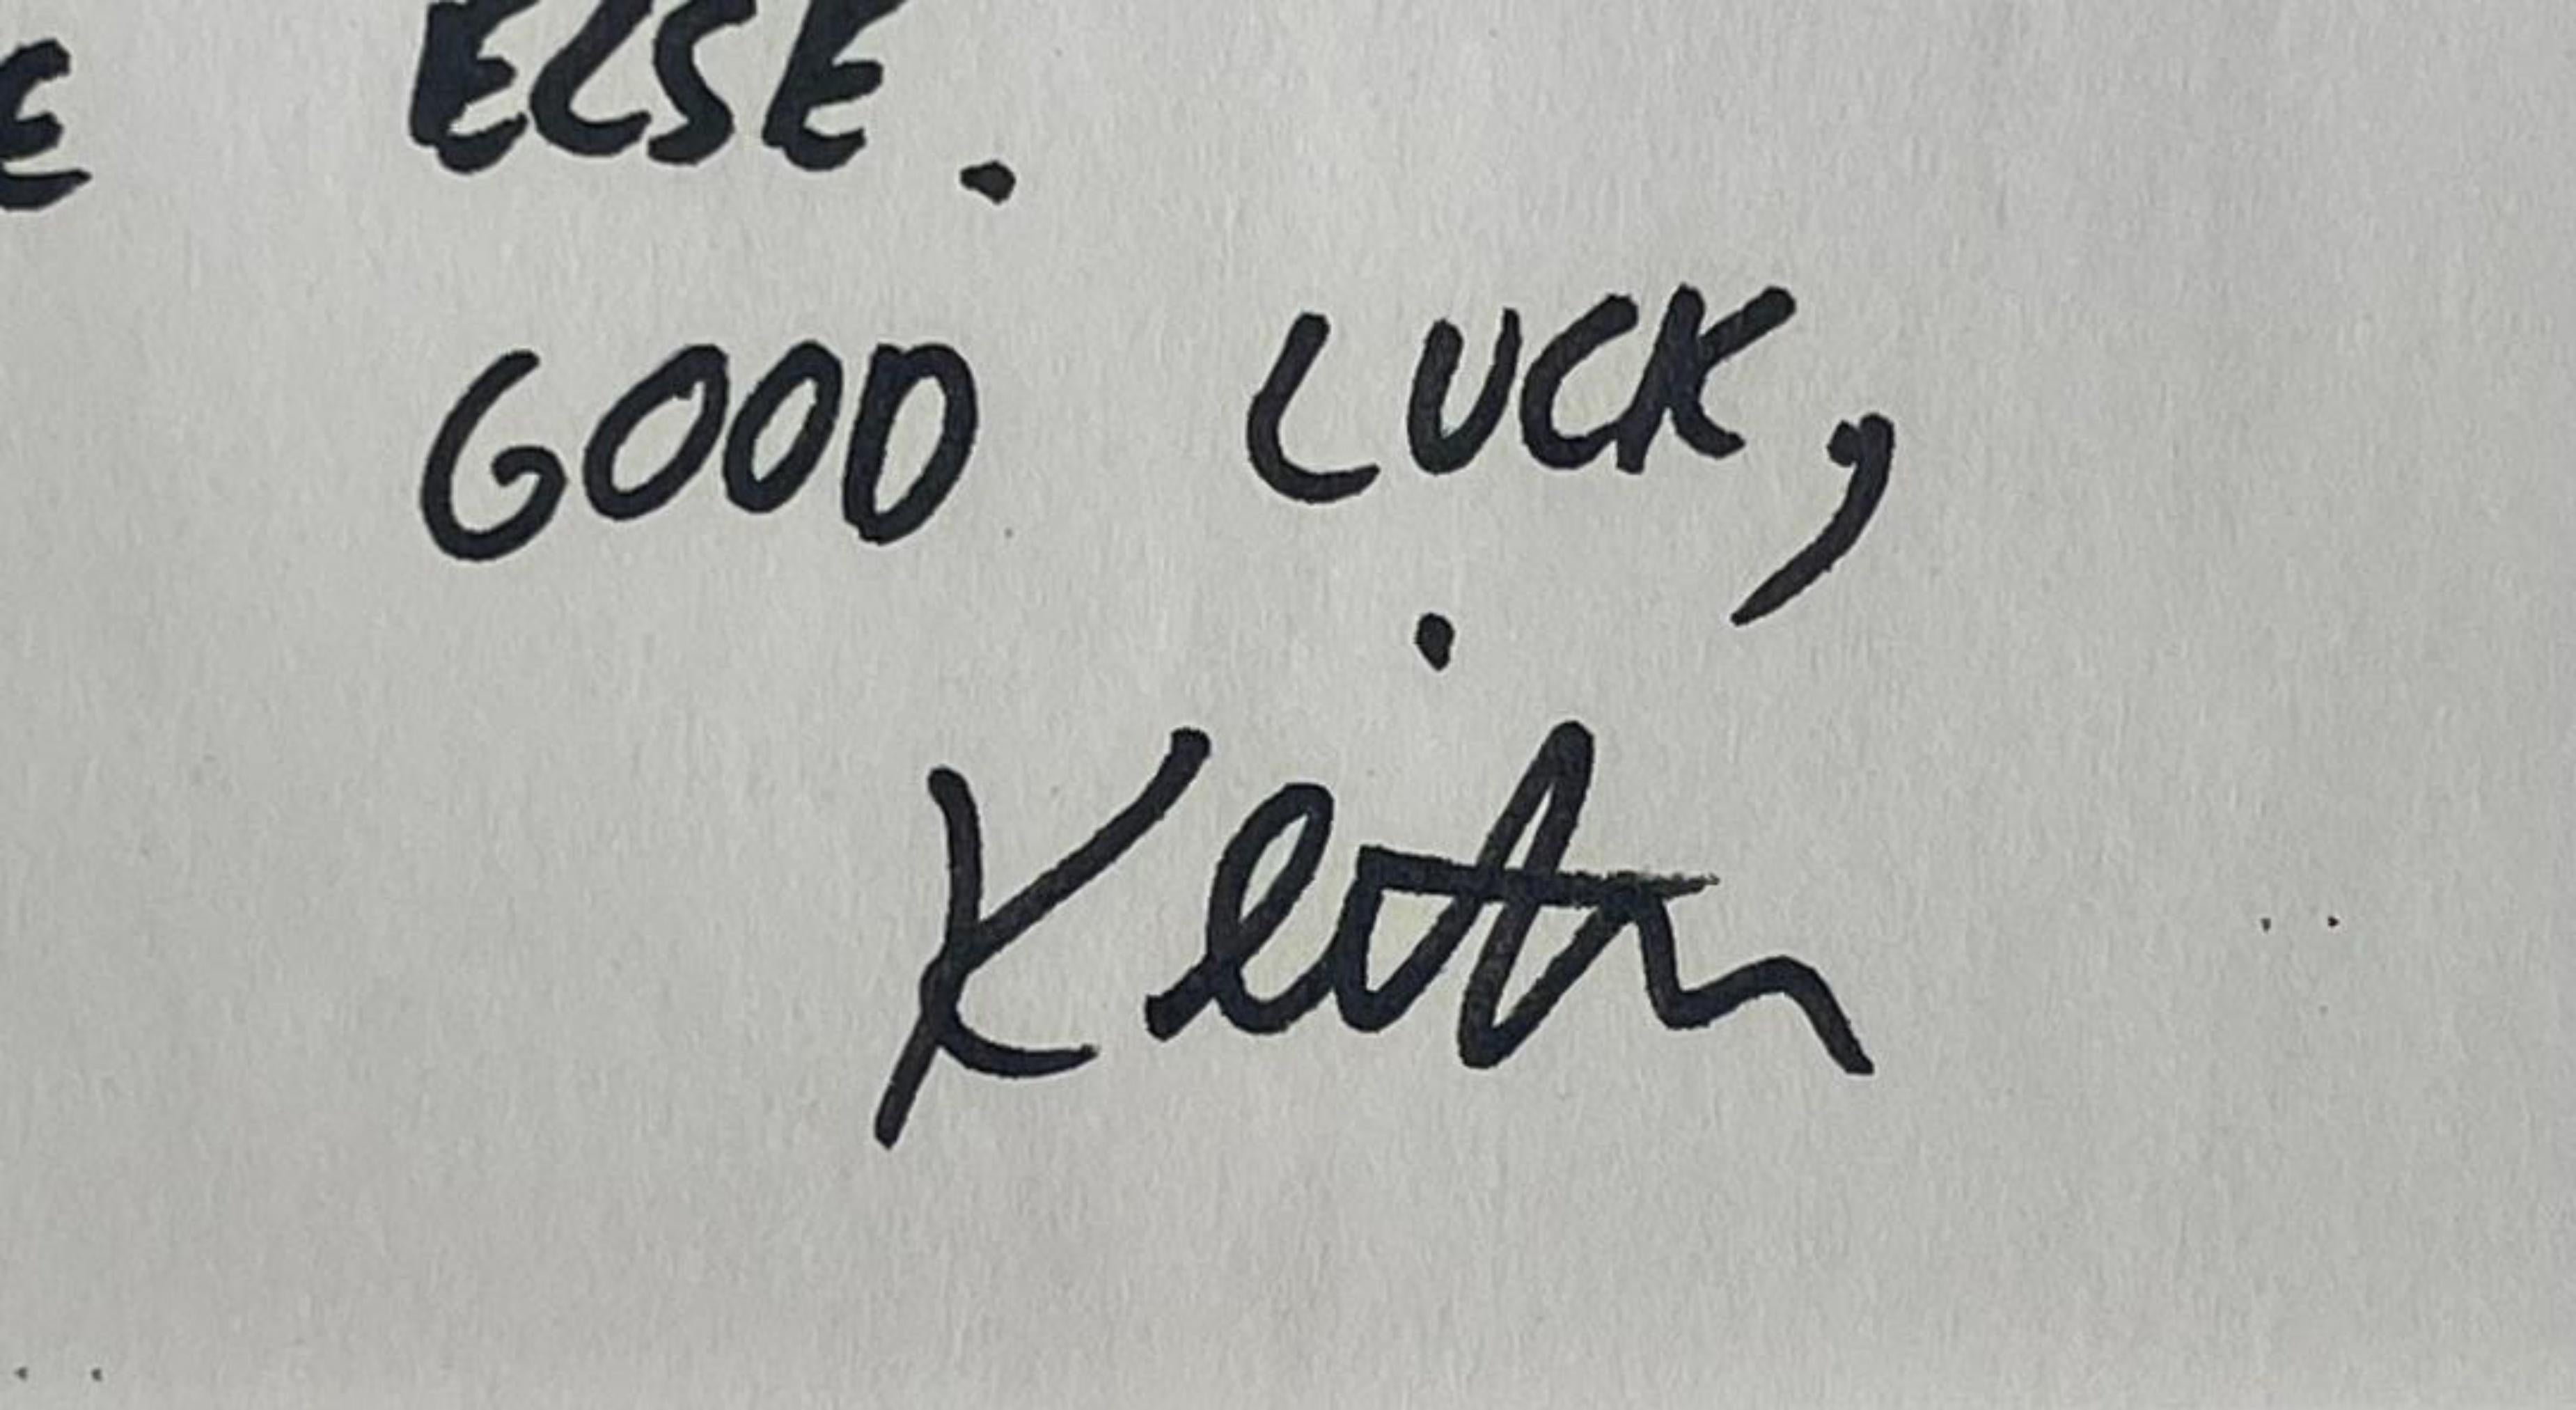 ELSE.
GOOD LUCK,
Keith